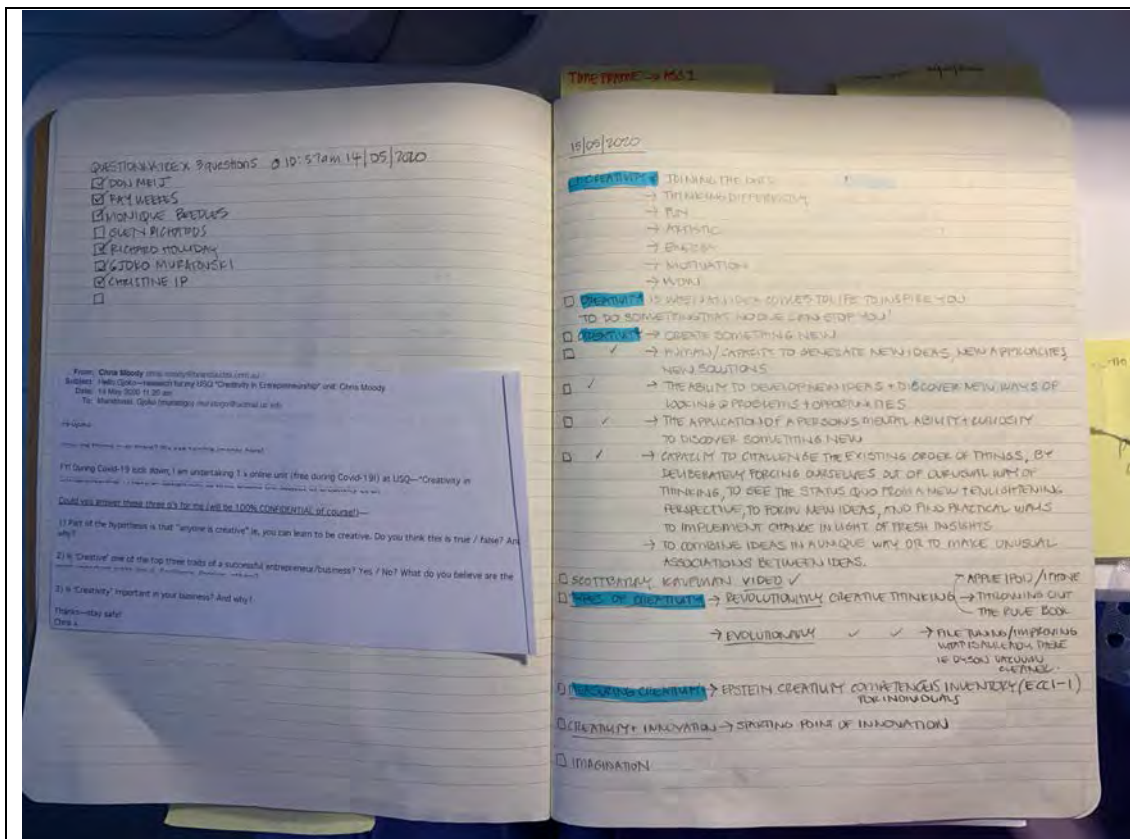 TIMEFRAME → ASS 1
QUESTIONNAIRE X 3 questions @ 10:57am 14/05/2020
DON MEIJ
FAY WEEKES
MONIQUE BEEDLES
GLEN RICHARDS
RICHARD HOLLIDAY
GJOKO MURATOVSKI
CHRISTINE IP
From: Chris Moody
Subject: Hello Gjoko—research for my USQ "Creativity in Entrepreneurship" unit: Chris Moody
Date: 14 May 2020 11:20 am
To: Muratovski, Gjoko
FYI During Covid-19 lock down, I am undertaking 1 x online unit (free during Covid-19!) at USQ—"Creativity in
Could you answer these three q's for me (will be 100% CONFIDENTIAL of course!)—
1) Part of the hypothesis is that "anyone is creative" ie, you can learn to be creative. Do you think this is true / false? And
why?
2) Is 'Creative' one of the top three traits of a successful entrepreneur/business? Yes / No? What do you believe are the
3) Is 'Creativity' important in your business? And why?
Thanks—stay safe!
Chris
15/05/2020
CREATIVITY JOINING THE DOTS
→ THINKING DIFFERENTLY
→ FUN
→ ARTISTIC
→ ENERGY
→ MOTIVATION
→ WOW
CREATIVITY IS WHEN AN IDEA COMES TO LIFE TO INSPIRE YOU
TO DO SOMETHING THAT NO ONE CAN STOP YOU!
CREATIVITY → CREATE SOMETHING NEW
✓ → HUMAN/CAPACITY TO GENERATE NEW IDEAS, NEW APPROACHES,
NEW SOLUTIONS
✓ → THE ABILITY TO DEVELOP NEW IDEAS + DISCOVER NEW WAYS OF
LOOKING @ PROBLEMS + OPPORTUNITIES
✓ → THE APPLICATION OF A PERSON'S MENTAL ABILITY + CURIOSITY
TO DISCOVER SOMETHING NEW
✓ → CAPACITY TO CHALLENGE THE EXISTING ORDER OF THINGS, BY
DELIBERATELY FORCING OURSELVES OUT OF OUR USUAL WAY OF
THINKING, TO SEE THE STATUS QUO FROM A NEW + ENLIGHTENING
PERSPECTIVE, TO FORM NEW IDEAS, AND FIND PRACTICAL WAYS
TO IMPLEMENT CHANGE IN LIGHT OF FRESH INSIGHTS
→ TO COMBINE IDEAS IN A UNIQUE WAY OR TO MAKE UNUSUAL
ASSOCIATIONS BETWEEN IDEAS.
SCOTT BARRY KAUFMAN VIDEO ✓
TYPES OF CREATIVITY → REVOLUTIONARY CREATIVE THINKING → APPLE IPOD / IPHONE
→ THROWING OUT
THE RULE BOOK
→ EVOLUTIONARY ✓ ✓ → FINE TUNING/IMPROVING
WHAT IS ALREADY THERE
IE DYSON VACUUM
CLEANER.
MEASURING CREATIVITY → EPSTEIN CREATIVITY COMPETENCIES INVENTORY (ECCI-I)
FOR INDIVIDUALS
CREATIVITY + INNOVATION → STARTING POINT OF INNOVATION
IMAGINATION